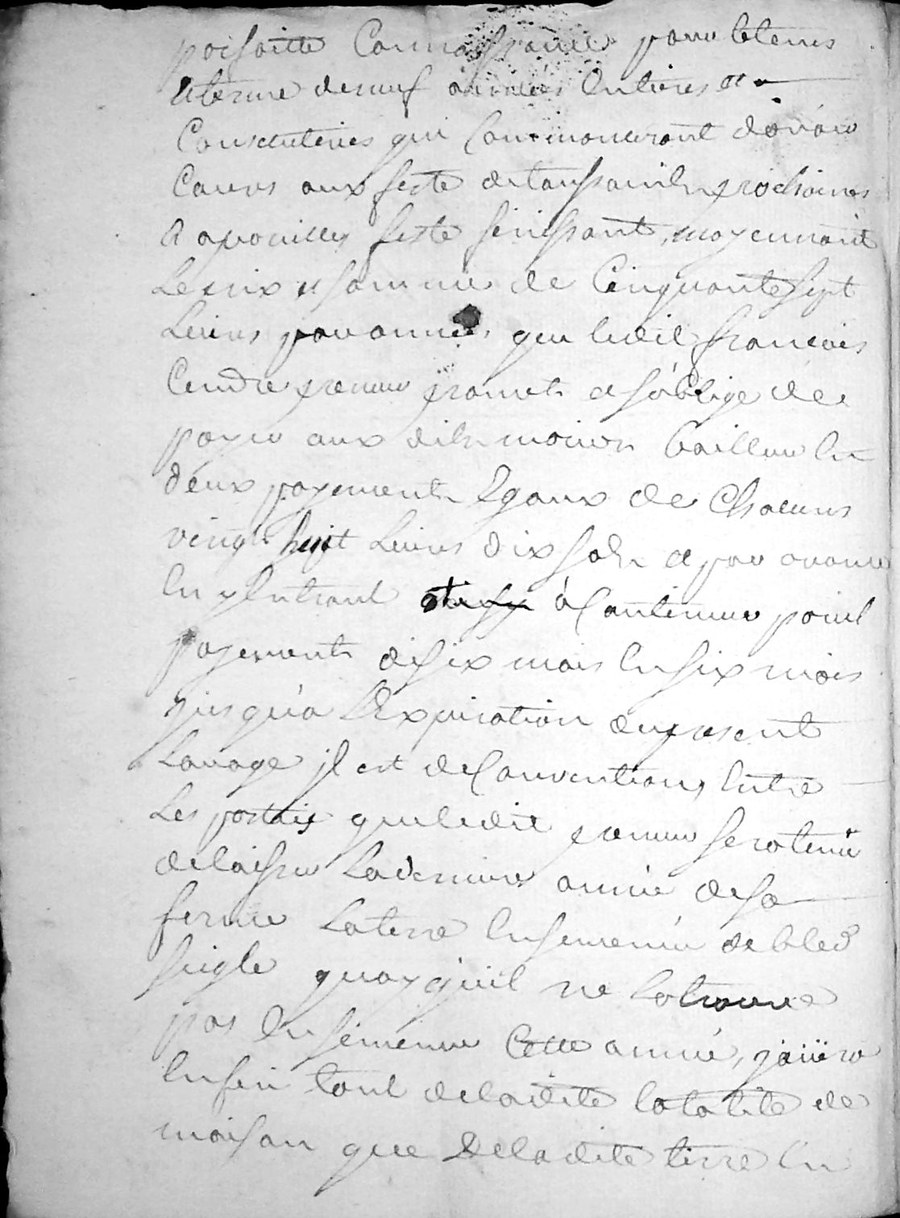 parfaitte Connoissance pour le tems
et terme de neuf années Entieres et
Consecutives qui Commanceront d'avoir
Cours aux feste de toussaints prochaines
a apareilles feste finissant, moyennant
Le prix et somme de Cinquante sept
Livres par année que ledit françois
Cendre preneur promet et s'oblige de
payer aux dits moines Bailleur En
deux payements Egaux de Chacuns
vingt huit Livres dix sols et par avance
En y Entrant et à Continuer pareil
payements de six mois En six mois
jusqu'a L'Expiration du present
Louage jl est de Convention Entre
Les parties que ledit preneur sera tenu
de laisser La derniere année de sa
ferme La terre Ensemencée de bled
seigle quoy qu'il ne la trouve
pas Ensemencée Cette année, jouira
Enfin tant de ladite totalité de
maison que de ladite terre En